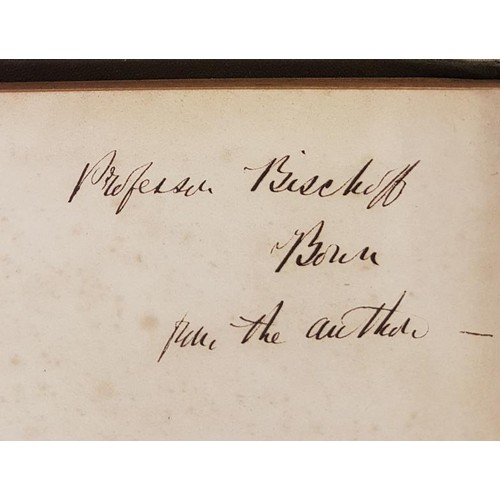 Professor Bischoff
Bonn
from the author —